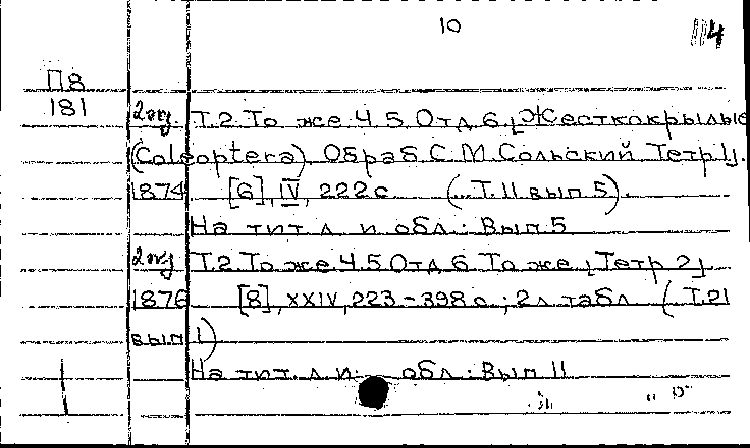 10
114
П8
181
2 экз. Т.2. То же. Ч.5. Отд.6. [Жесткокрылые
(Coleoptera). Обраб. С.М. Сольский. Тетр. 1].
1874 [6], IV, 222 с. (... Т. 11. вып. 5).
На тит. л. и обл.: Вып. 5
2 экз. Т.2. То же. Ч.5. Отд.6. То же. [Тетр. 2].
1876 [8], XXIV, 223-398 с.; 2 л. табл. (... Т. 21
вып. 1)
На тит. л. и обл.: Вып. 11